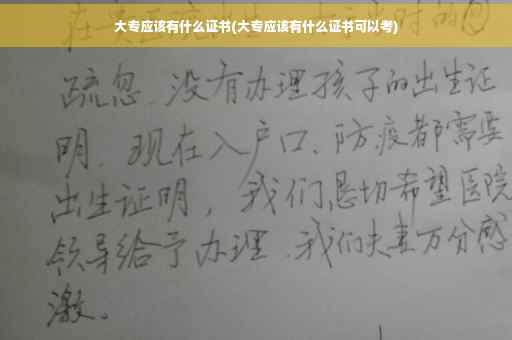 大专应该有什么证书(大专应该有什么证书可以考)
在 时的
疏忽.没有办理孩子的出生证
明.现在入户口、防疫都需要
出生证明，我们恳切希望医院
领导给予办理.我们夫妻万分感
激。